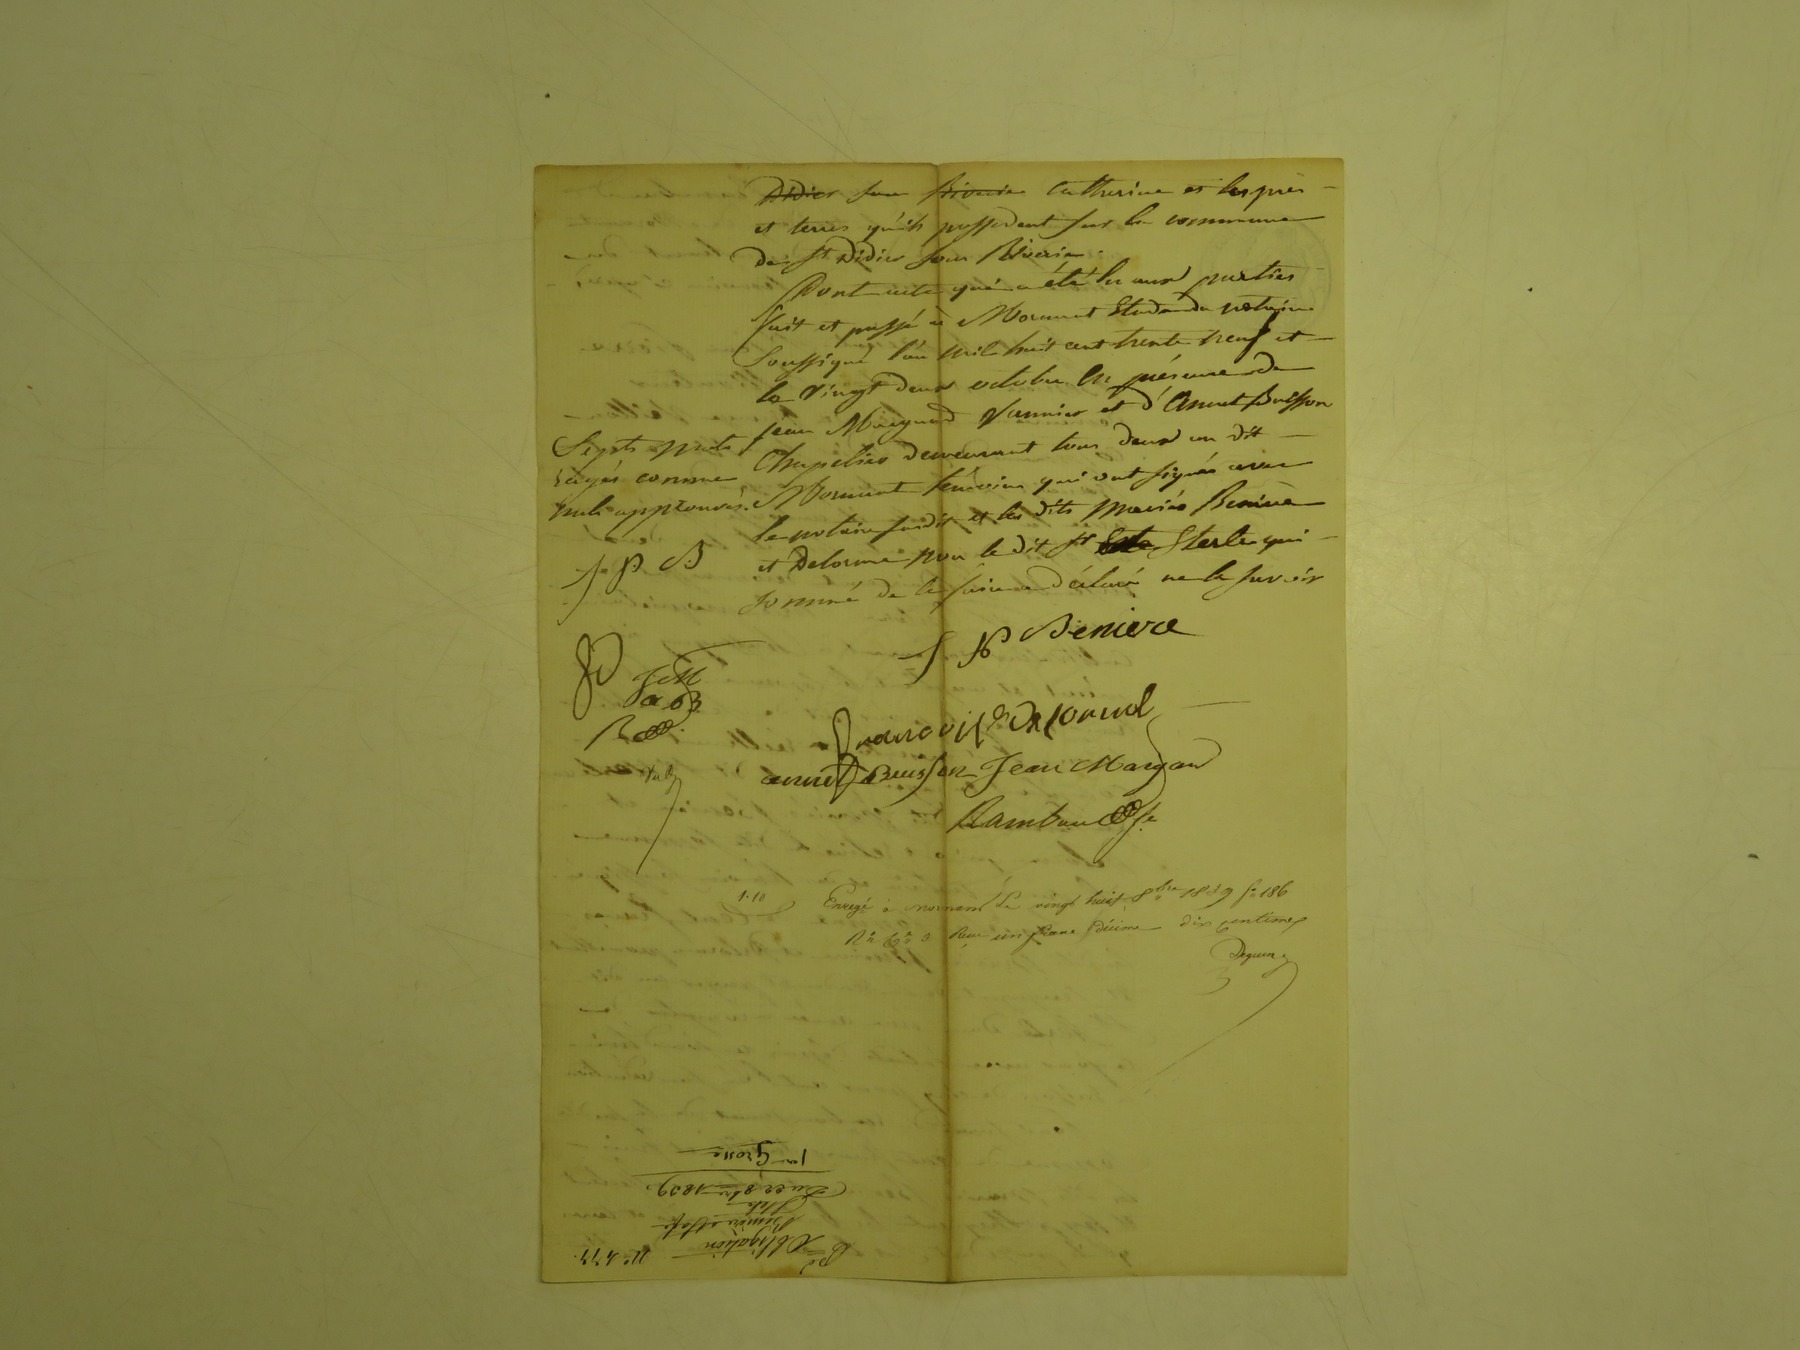 Didier sous Riverie Catherine et les prés
et terres qu'ils possedent sur la commune
de St Didier sous Riverie.
Dont acte qui a été lu aux parties
fait et passé à Mornant Etude du notaire
soussigné l'an mil huit cent trente neuf et
le vingt deux octobre en présence de
Jean Margand Vannier et d'Annet Buisson
Chapelier demeurant tous deux au dit
Mornant témoins qui ont signés avec
le notaire susdit et les dits mariés Benière
et Delorme non le dit Sr Sterle qui
sommé de le faire a déclaré ne le savoir
Septs mots
rayés comme
nuls approuvés.
J P B
J P Beniere
françoise Delorme
annet Buisson Jean Margan
J M
a B
Rambau
1.10
Enregé à Mornant le vingt huit 8bre 1839 fo 186
Ro Ce 3 Reçu un franc décime dix centimes
No 477.
Obligation
Benière et Delorme
Sterle
Du 22 8bre 1839.
1ere Grosse